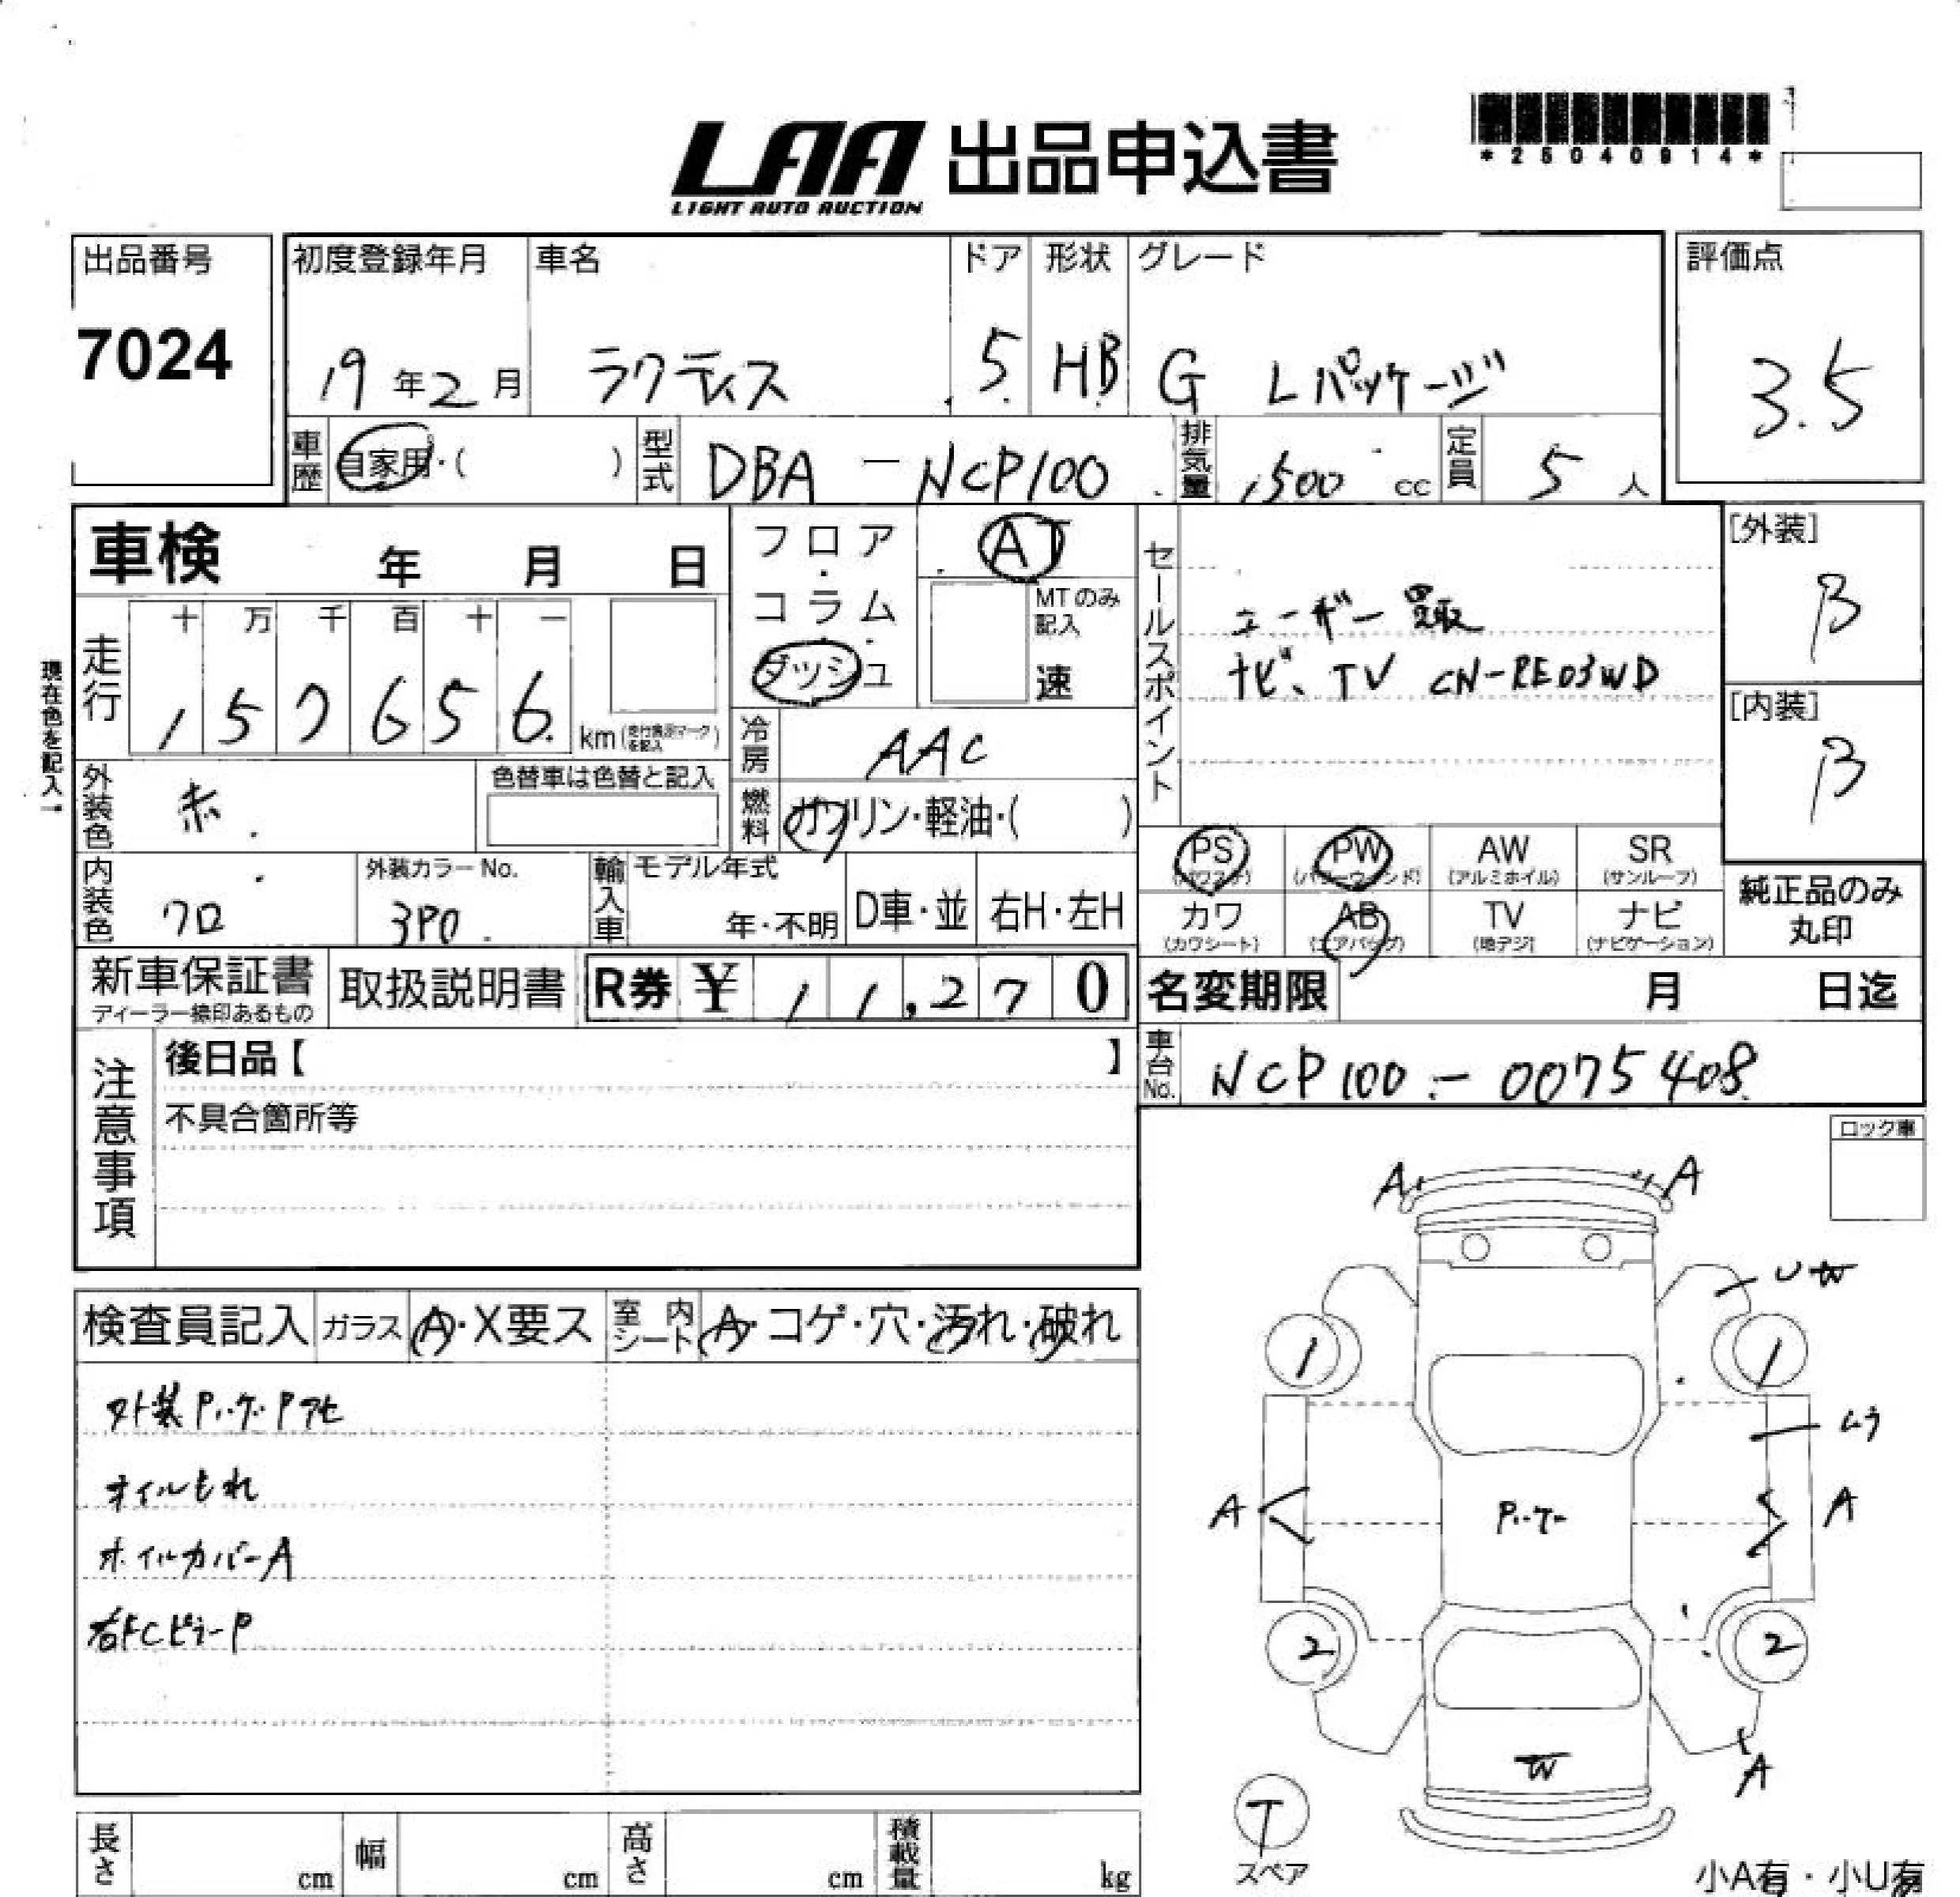 LAA 出品申込書
LIGHT AUTO AUCTION
*25040914*
出品番号
7024
初度登録年月
19年2月
車名
ラクティス
ドア
5
形状
HB
グレード
G Lパッケージ
評価点
3.5
車歴
自家用・( )
型式
DBA - NCP100
排気量
1500 cc
定員
5人
車検 年 月 日
フロア・コラム・ダッシュ
AT
MTのみ記入
速
走行
十 万 千 百 十 一
157656 km
現在色を記入→
冷房
AAC
燃料
ガソリン・軽油・( )
外装色
赤
色替車は色替と記入
内装色
クロ
外装カラーNo.
3P0
輸入車
モデル年式
年・不明
D車・並
右H・左H
セールスポイント
ユーザー買取
ナビ、TV CN-RE03WD
[外装]
B
[内装]
B
PS
(パワステ)
PW
(パワーウィンド)
AW
(アルミホイル)
SR
(サンルーフ)
カワ
(カワシート)
AB
(エアバッグ)
TV
(地デジ)
ナビ
(ナビゲーション)
純正品のみ
丸印
新車保証書
ディーラー捺印あるもの
取扱説明書
R券 ¥ 11,270
名変期限 月 日迄
車台No.
NCP100-0075408
注意事項
後日品【 】
不具合箇所等
ロック車
検査員記入
ガラス
A・X要ス
室内シート
A・コゲ・穴・汚れ・破れ
外装Pハゲ・Pアセ
オイルもれ
ホイルカバーA
右FCピラーP
A
A
U W
1
1
ムラ
A
Pハゲ
A
2
2
W
A
T
スペア
長さ cm
幅 cm
高さ cm
積載量 kg
小A有・小U有